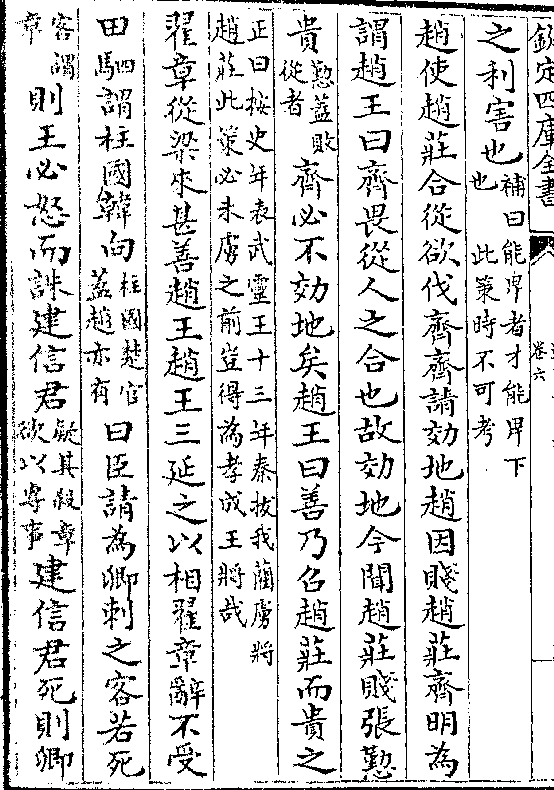 欽定四庫全書
卷六
之利害也補曰能卑者才能卑下也此策時不可考
趙使趙莊合從欲伐齊齊請効地趙因賤趙莊齊明為
謂趙王曰齊畏從人之合也故効地今聞趙莊賤張懃
貴懃蓋敗從者齊必不効地矣趙王曰善乃召趙莊而貴之
正曰按史年表武靈王十三年秦拔我藺虜將趙莊此策必未虜之前豈得為孝成王將哉
翟章從梁來甚善趙王趙王三延之以相翟章辭不受
田駟四馬謂柱國韓向柱國楚官蓋趙亦有曰臣請為卿刺之客若死
客謂章則王必怒而誅建信君疑其殺章欲以專事建信君死則卿